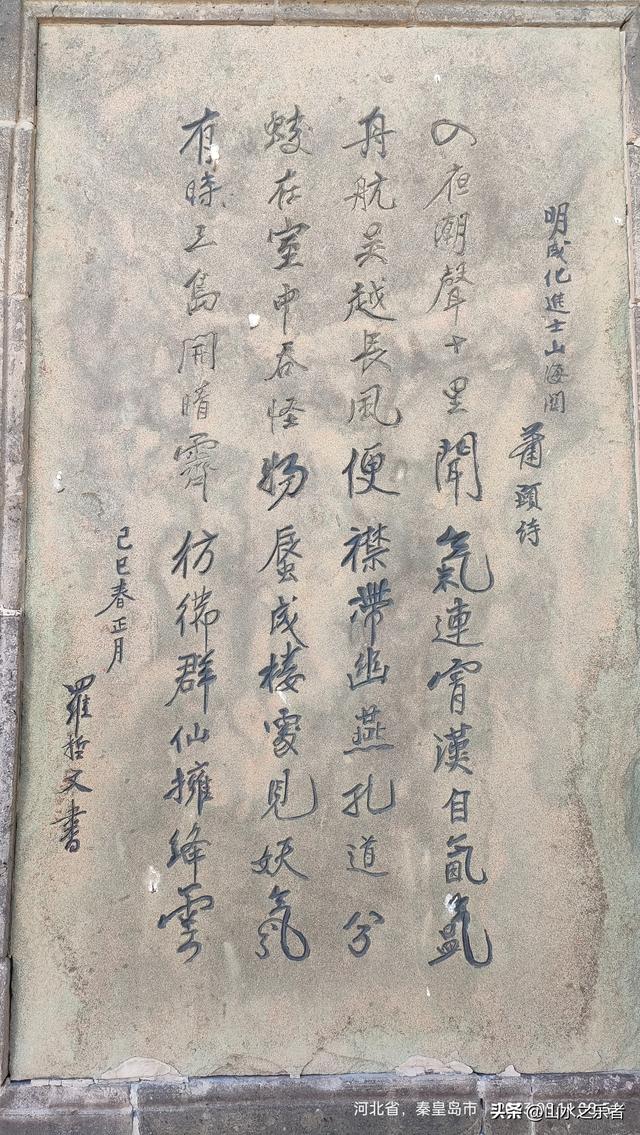 明成化進士山海関
蕭顯诗
入夜潮聲十里聞氣連霄漢自氤氳
舟航吴越長風便襟帶幽燕孔道分
蛟在室中吞怪物蜃成楼處見妖氛
有時三島開晴霽彷彿群仙擁絳雲
己巳春正月
羅哲文書
河北省，秦皇岛市
头条 @山水之乐者